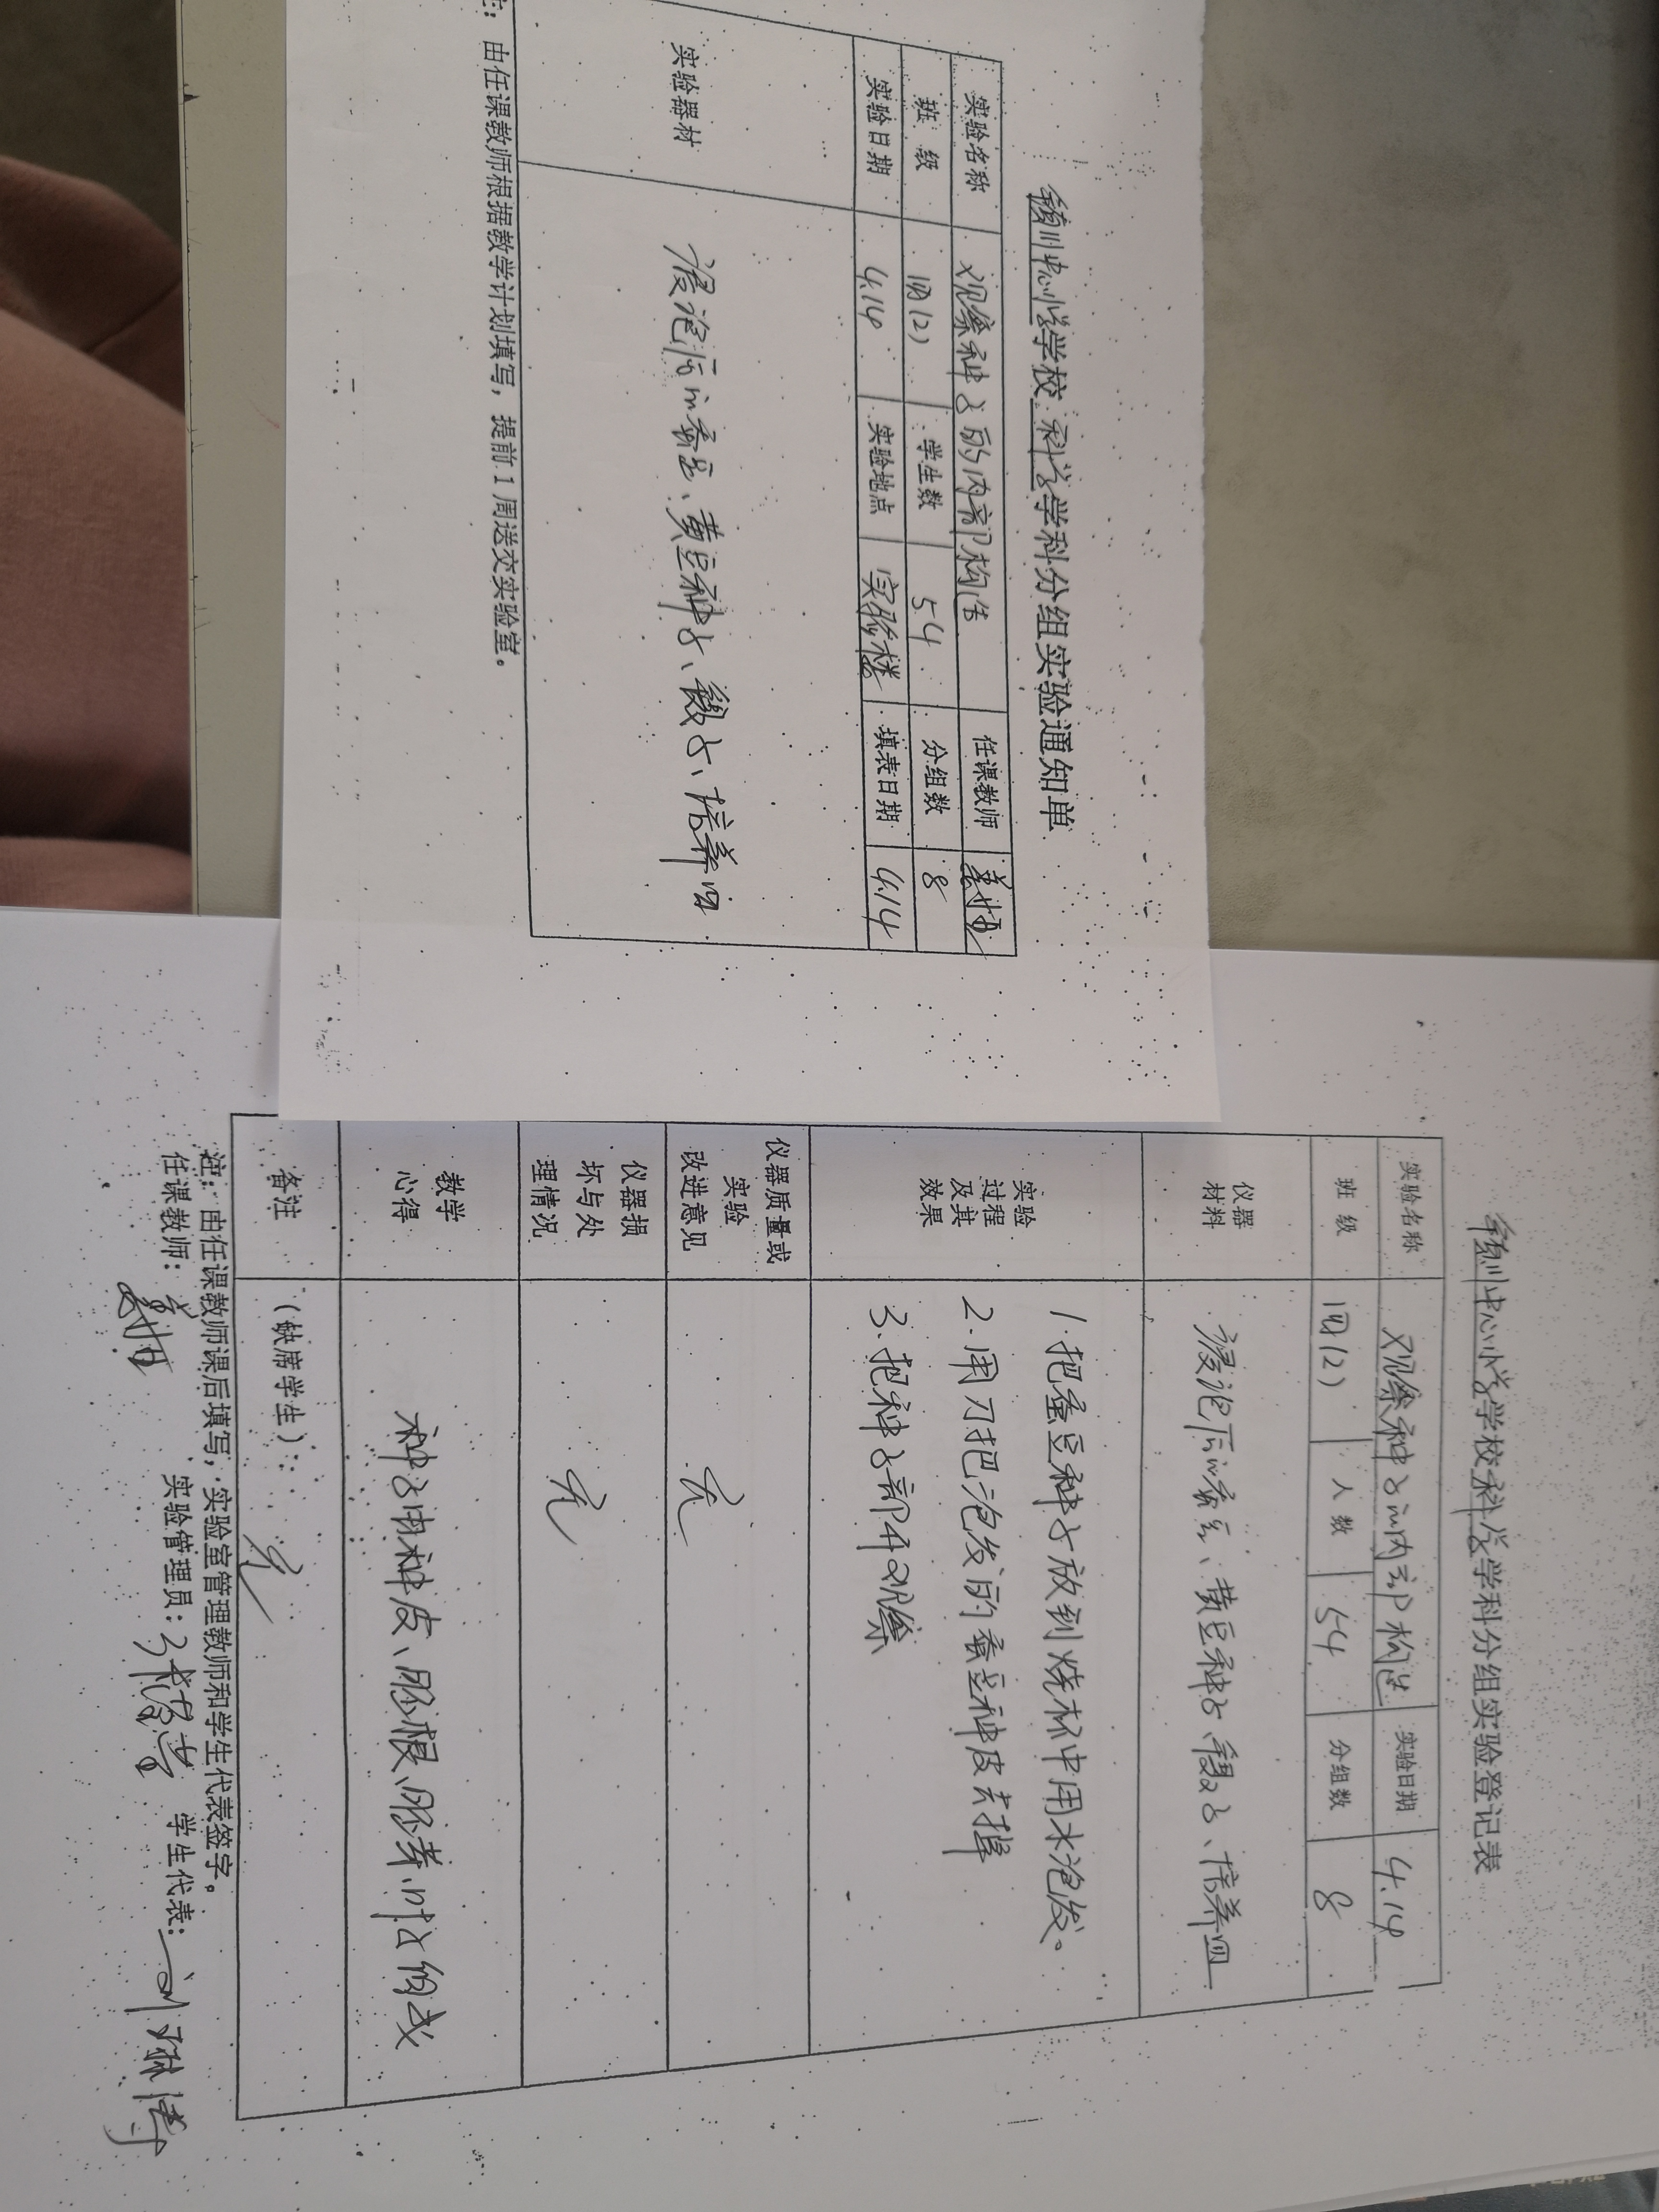 颍川中心小学学校 科学学科分组实验通知单
实验名称 观察种子的内部构造 任课教师
班 级 四(2) 学生数 54 分组数 8
实验日期 4.14 实验地点 实验楼 填表日期 4.14
实验器材 浸泡后的蚕豆、黄豆种子、镊子、培养皿
注：由任课教师根据教学计划填写，提前1周送交实验室。
颍川中心小学学校科学学科分组实验登记表
实验名称 观察种子的内部构造 实验日期 4.14
班 级 四(2) 人 数 54 分组数 8
仪器
材料 浸泡后的蚕豆、黄豆种子、镊子、培养皿
实验
过程
及其
效果
1.把蚕豆种子放到烧杯中用水泡发。
2.用刀把泡发的蚕豆种皮去掉
3.把种子部分观察
仪器质量或
实验
改进意见 无
仪器损
坏与处
理情况 无
教学
心得 种子由种皮、胚根、胚芽、叶子组成
备注 (缺席学生)： 无
注：由任课教师课后填写，实验室管理教师和学生代表签字。
任课教师： 实验管理员： 学生代表：